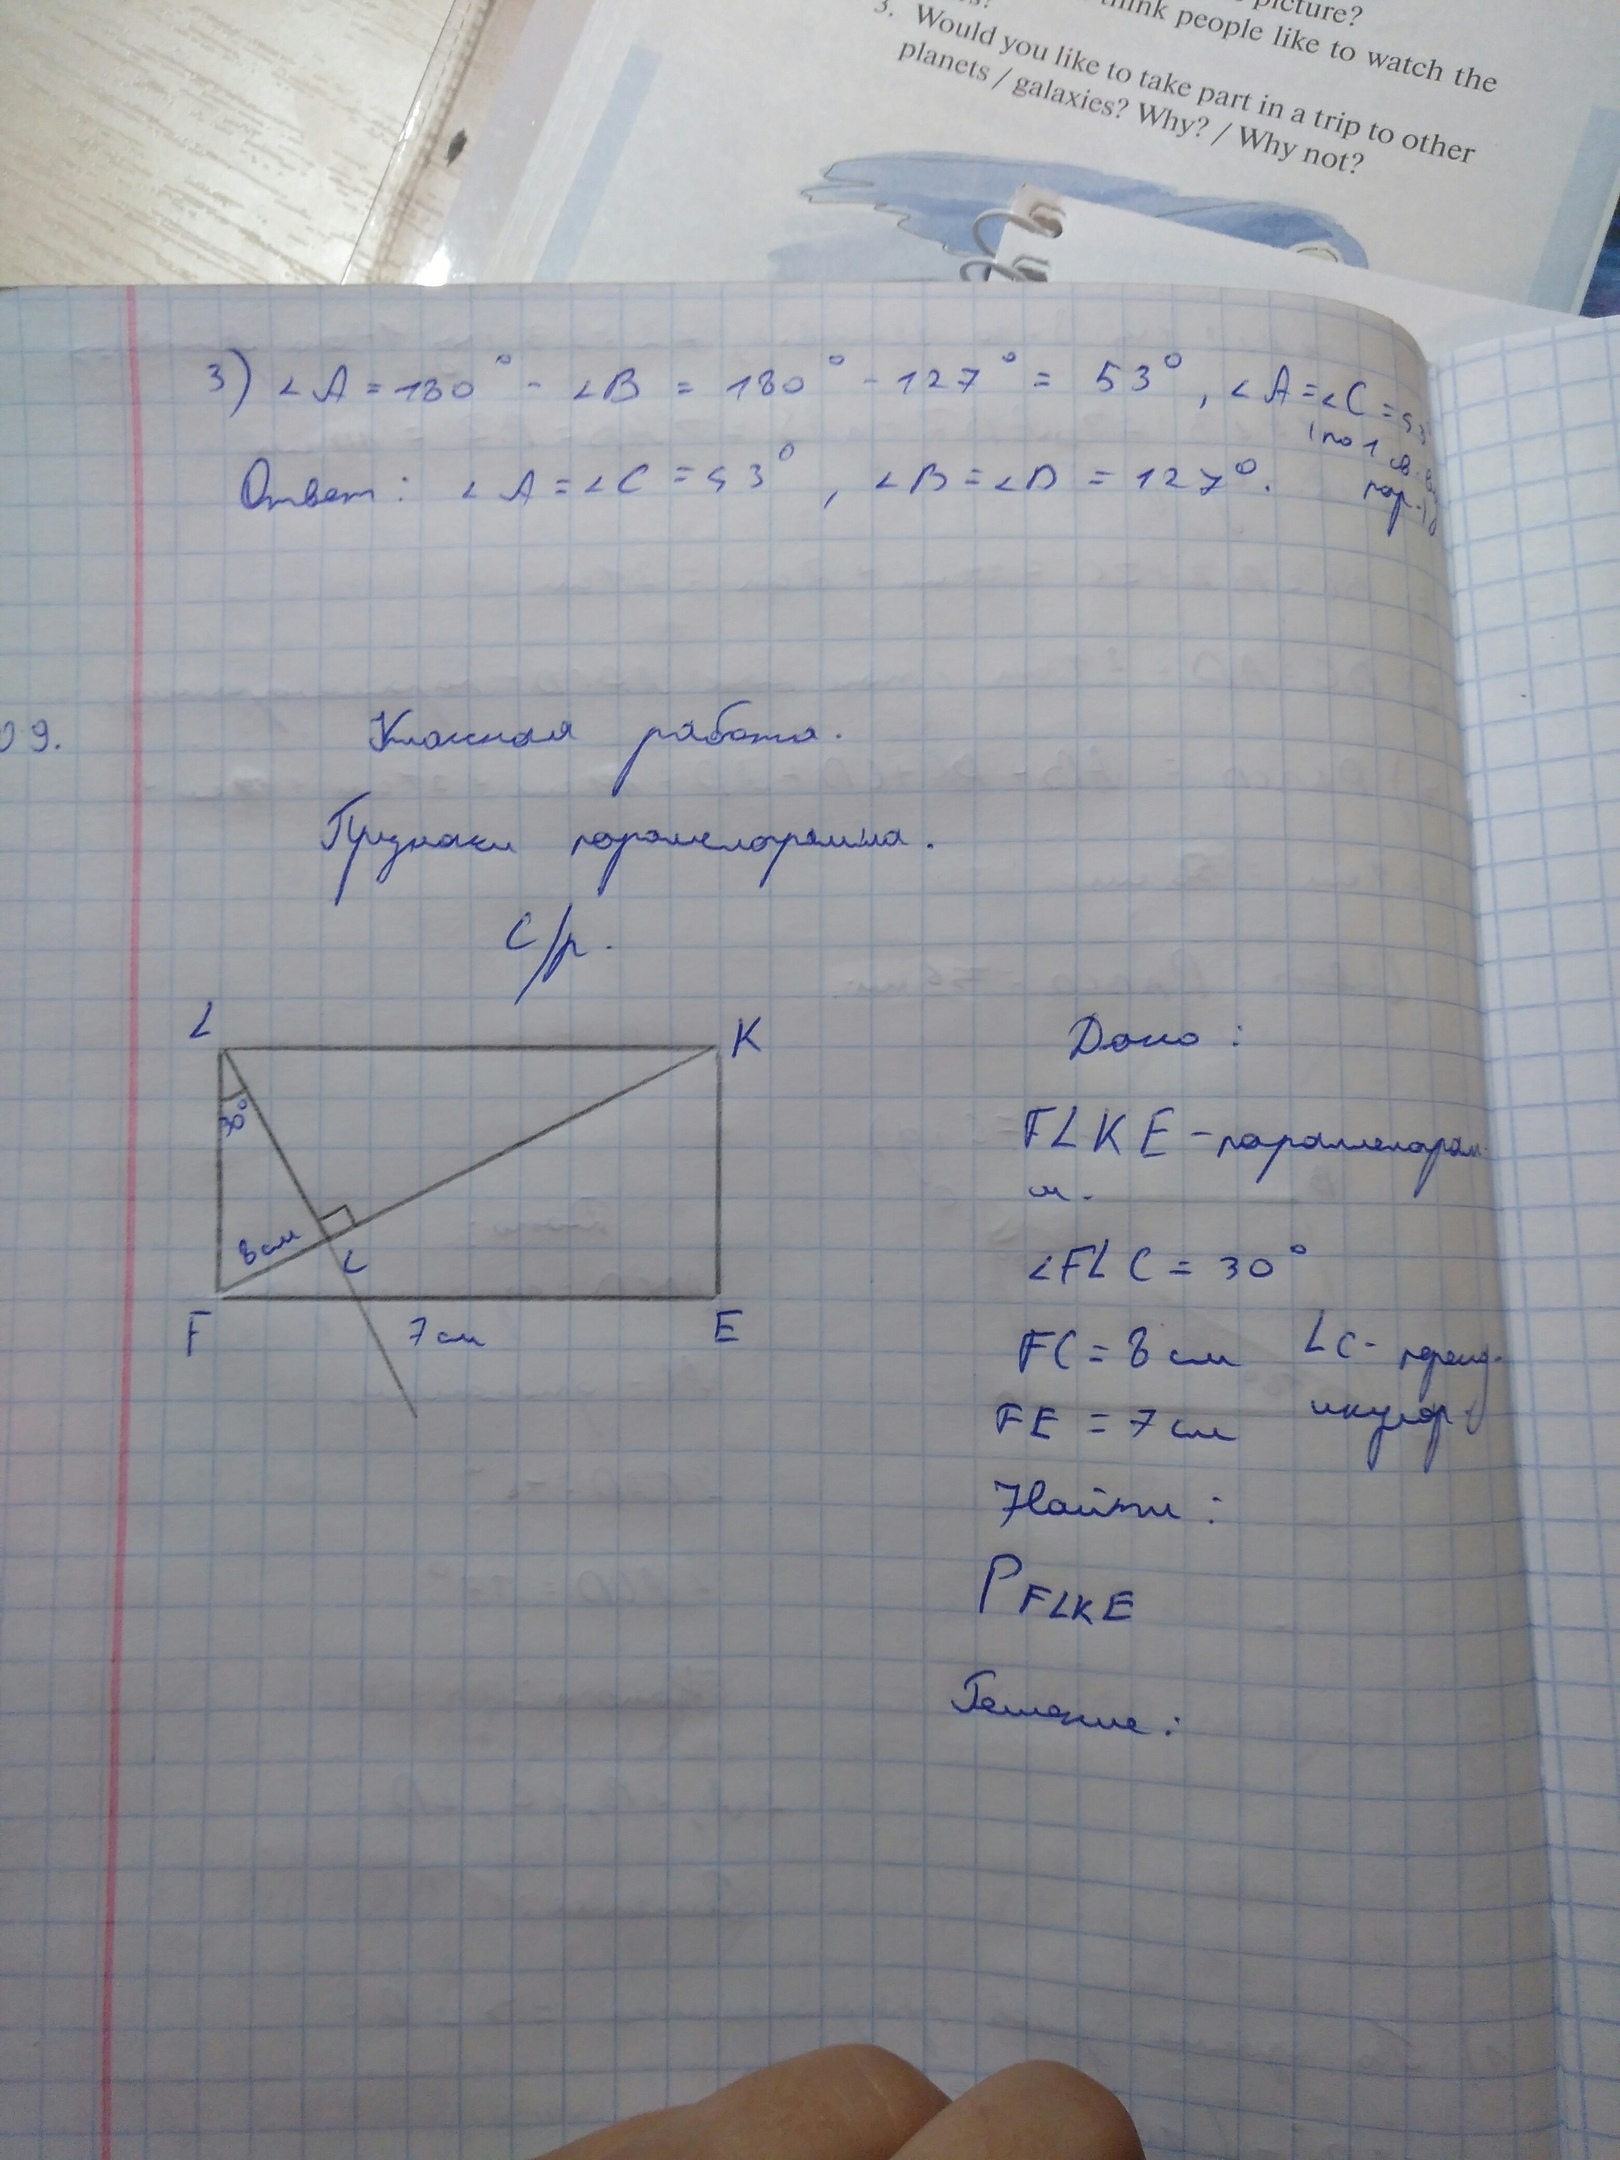 picture?
think people like to watch the
3. Would you like to take part in a trip to other
planets / galaxies? Why? / Why not?
3) ∠A = 180° - ∠B = 180° - 127° = 53°, ∠A = ∠C = 53°
(по 1 св-ву
пар-
Ответ: ∠A = ∠C = 53°, ∠B = ∠D = 127°.
09.
Классная работа.
Признаки параллелограмма.
С/р.
L
K
30°
8 см
C
F
7 см
E
Дано:
FLKE - параллелограм
м.
∠FLC = 30°
FC = 8 см
LC - перпенд-
икуляр.
FE = 7 см
Найти:
P FLKE
Решение: